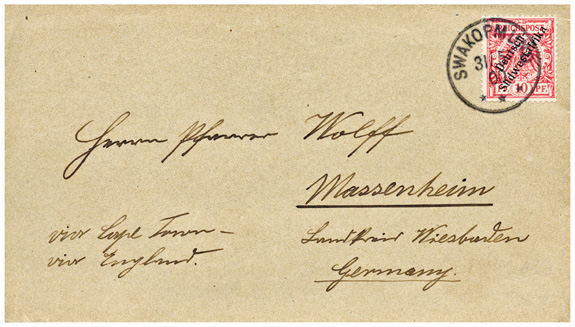 SWAKOPMUND
31
REICHSPOST
Deutsch-
Südwestafrika
10 PF.
Herrn Pfarrer Wolff
Massenheim
via Cape Town –
Landkreis Wiesbaden
via England.
Germany.